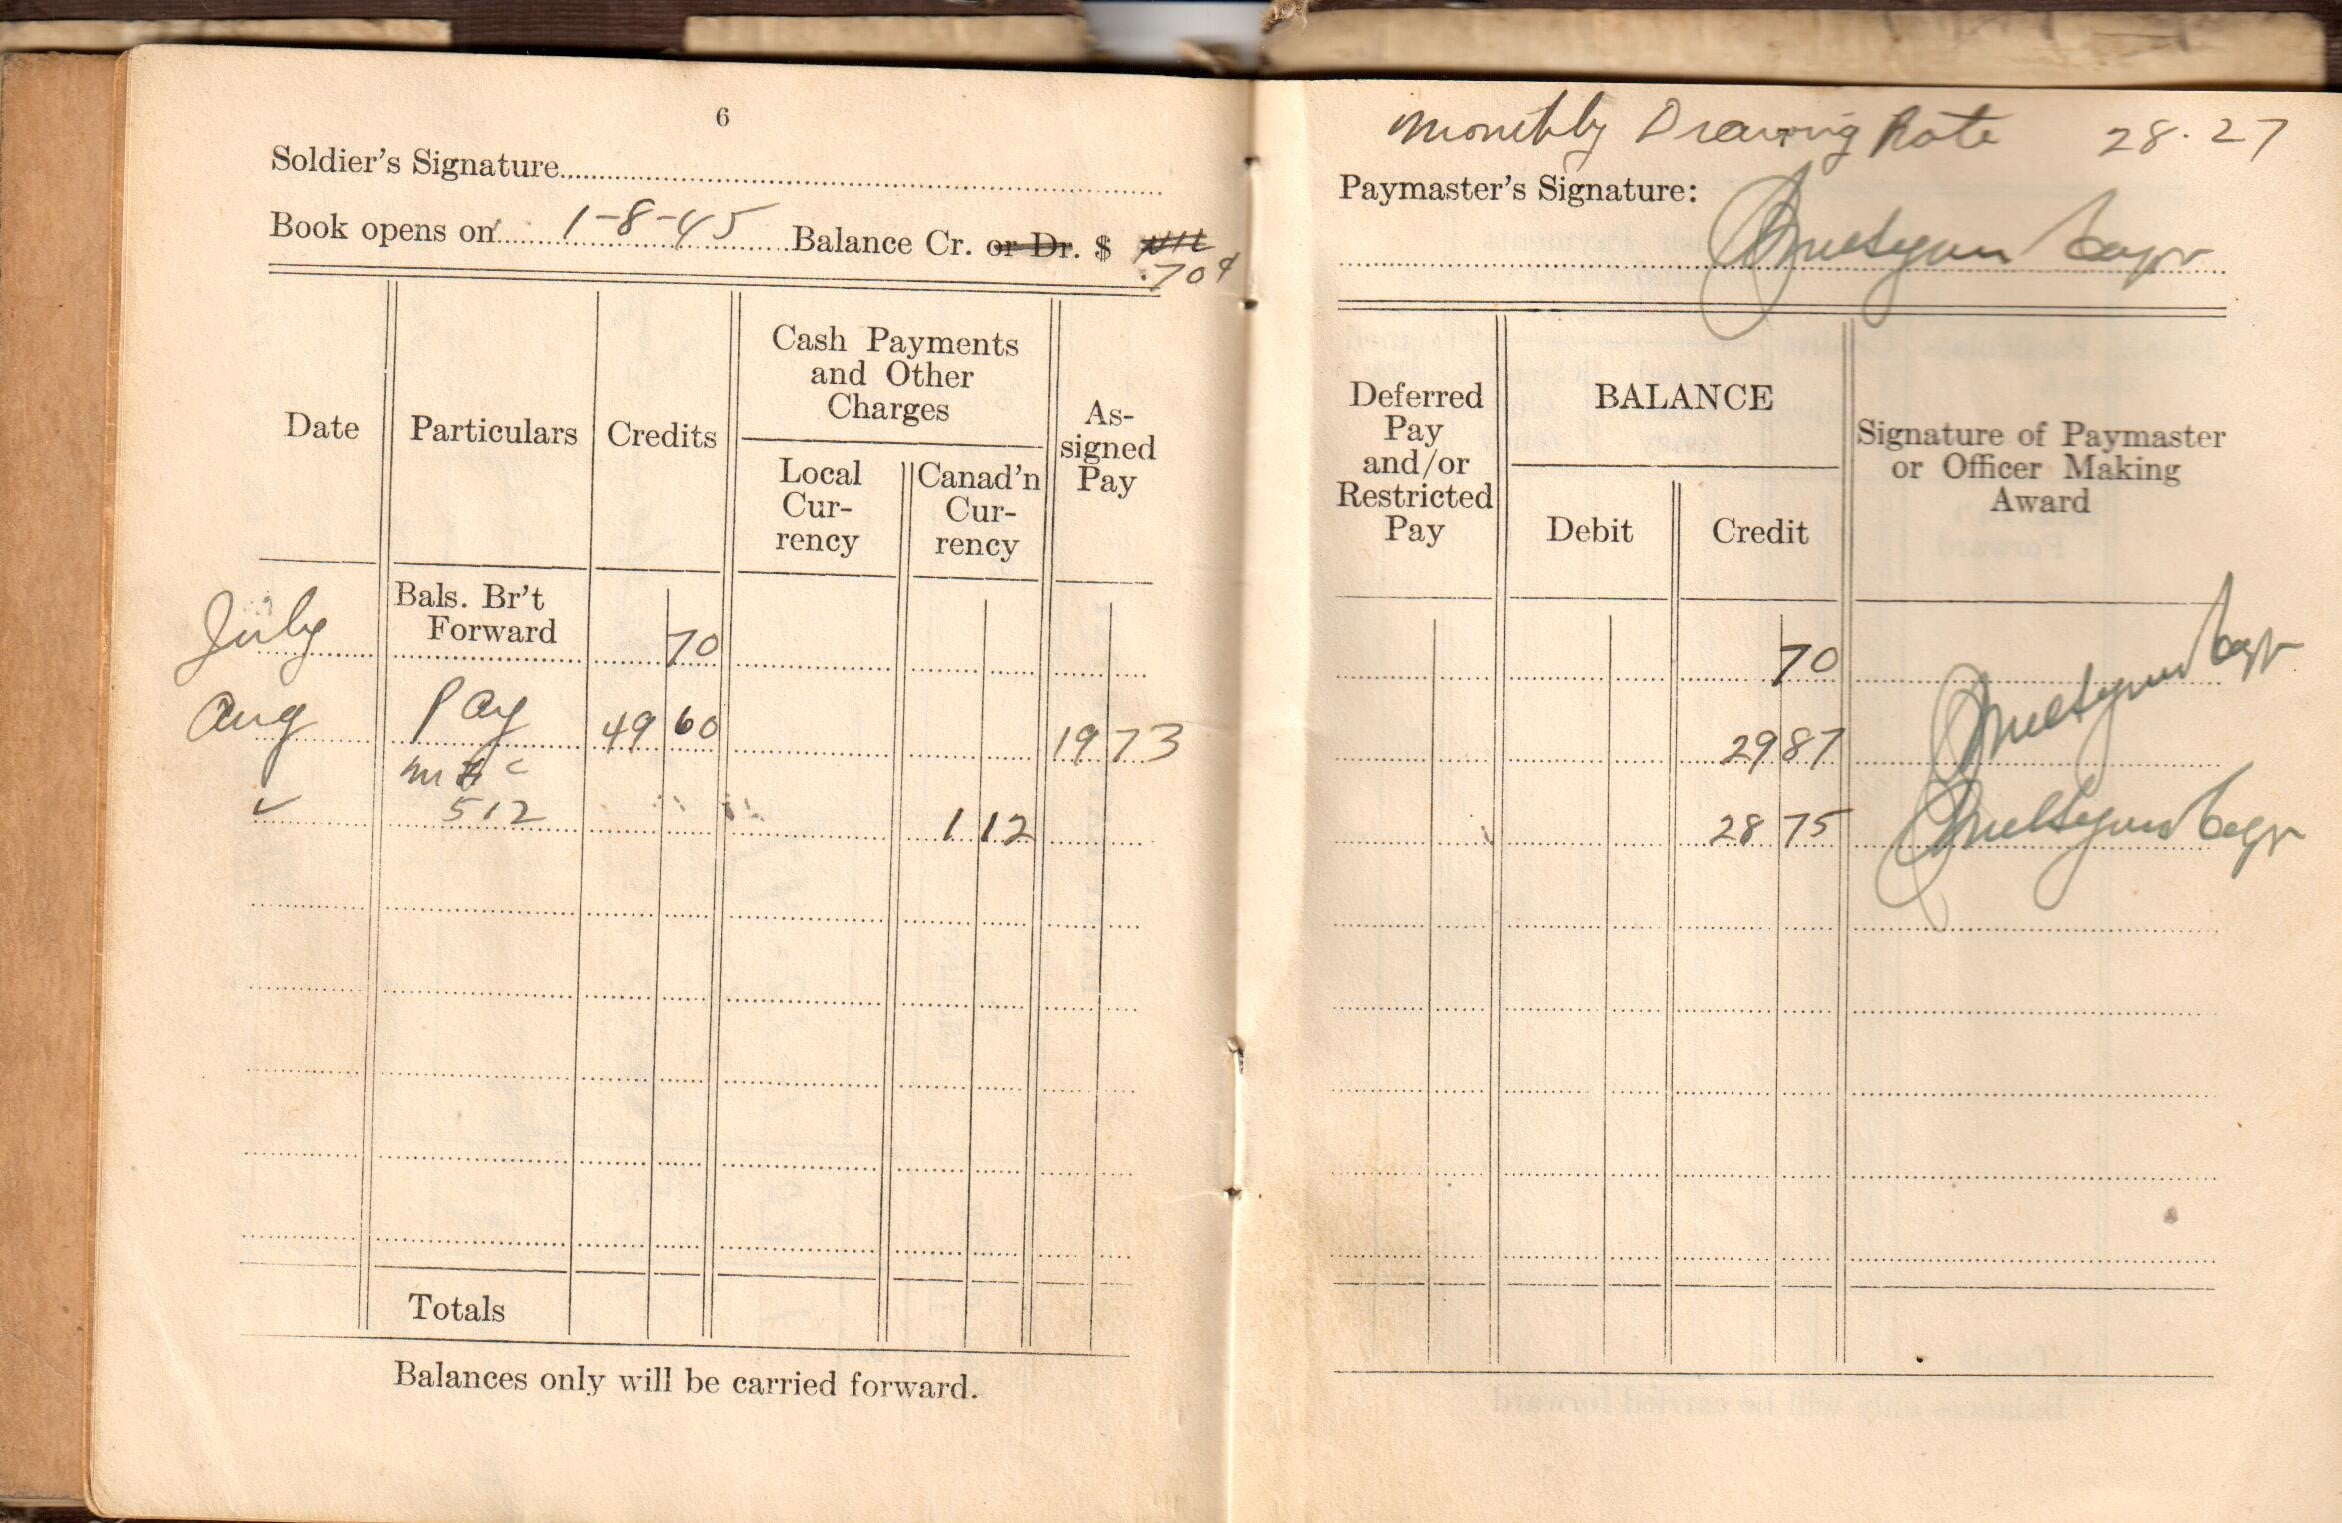 6
Soldier's Signature
Book opens on 1-8-45 Balance Cr. or Dr. $ Nil
.70¢
Date
Particulars
Credits
Cash Payments
and Other
Charges
Local
Cur-
rency
Canad'n
Cur-
rency
As-
signed
Pay
July Bals. Br't
Forward 70
Aug Pay 49 60 19 73
512 1 12
Totals
Balances only will be carried forward.
Monthly Drawing Rate 28.27
Paymaster's Signature:
Capt
Deferred
Pay
and/or
Restricted
Pay
BALANCE
Debit
Credit
Signature of Paymaster
or Officer Making
Award
70
29 87 Capt
28 75 Capt